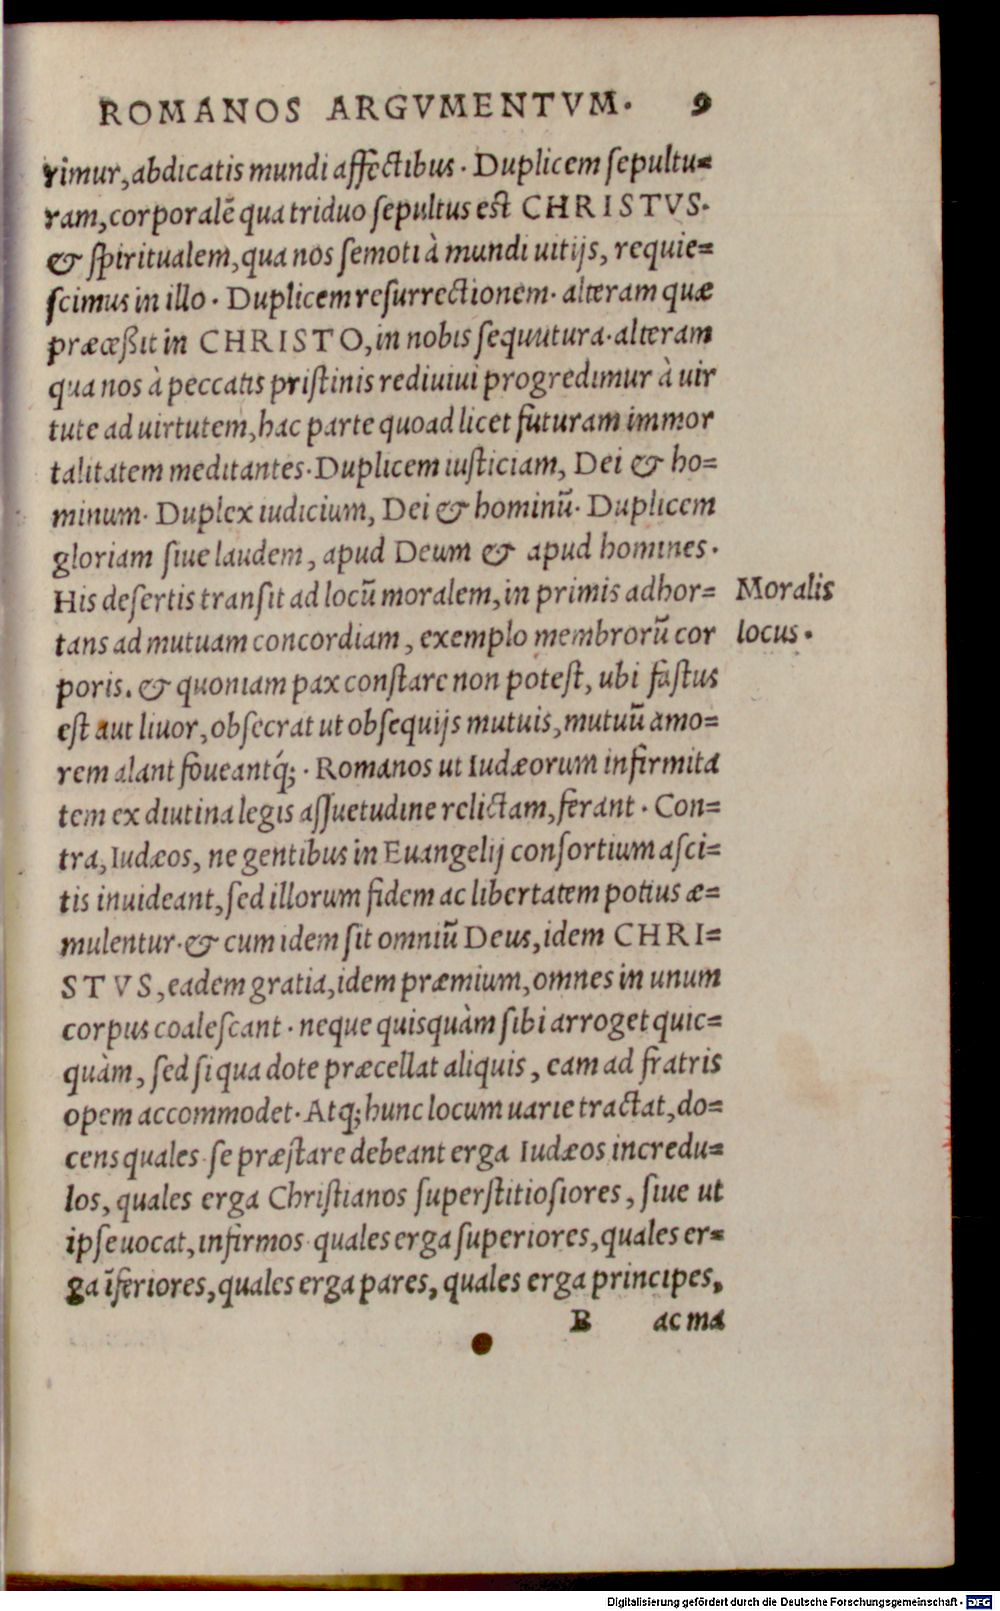 ROMANOS ARGVMENTVM. 9
rimur, abdicatis mundi affectibus. Duplicem sepultu=
ram, corporalē qua triduo sepultus est CHRISTVS.
& spiritualem, qua nos semoti à mundi uitijs, requie=
scimus in illo. Duplicem resurrectionem. alteram quæ
præceßit in CHRISTO, in nobis sequutura. alteram
qua nos à peccatis pristinis rediuiui progredimur à uir
tute ad uirtutem, hac parte quoad licet futuram immor
talitatem meditantes. Duplicem iusticiam, Dei & ho=
minum. Duplex iudicium, Dei & hominū. Duplicem
gloriam siue laudem, apud Deum & apud homines.
His desertis transit ad locū moralem, in primis adhor=
Moralis
tans ad mutuam concordiam, exemplo membrorū cor
locus.
poris. & quoniam pax constare non potest, ubi fastus
est aut liuor, obsecrat ut obsequijs mutuis, mutuū amo=
rem alant foueantq́;. Romanos ut Iudæorum infirmita
tem ex diutina legis assuetudine relictam, ferant. Con=
tra, Iudæos, ne gentibus in Euangelij consortium asci=
tis inuideant, sed illorum fidem ac libertatem potius æ=
mulentur. & cum idem sit omniū Deus, idem CHRI=
STVS, eadem gratia, idem præmium, omnes in unum
corpus coalescant. neque quisquàm sibi arroget quic=
quàm, sed si qua dote præcellat aliquis, eam ad fratris
opem accommodet. Atq; hunc locum uarie tractat, do=
cens quales se præstare debeant erga Iudæos incredu=
los, quales erga Christianos superstitiosiores, siue ut
ipse uocat, infirmos quales erga superiores, quales er=
ga īferiores, quales erga pares, quales erga principes,
B ac ma
Digitalisierung gefördert durch die Deutsche Forschungsgemeinschaft - DFG